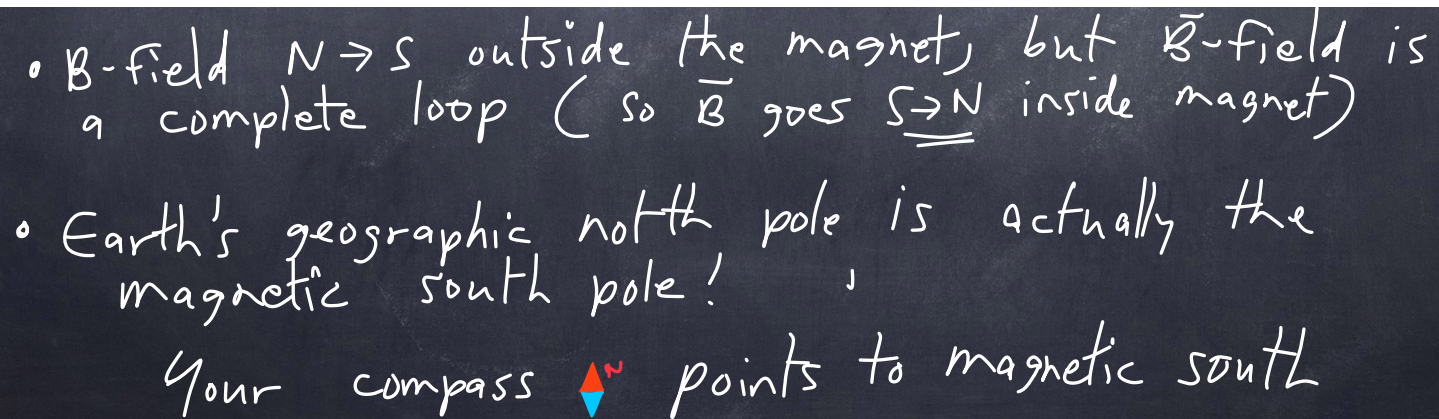 • B-field N → S outside the magnet, but B̄-field is
a complete loop (so B̄ goes S→N inside magnet)
• Earth's geographic north pole is actually the
magnetic south pole!
Your compass N points to magnetic south